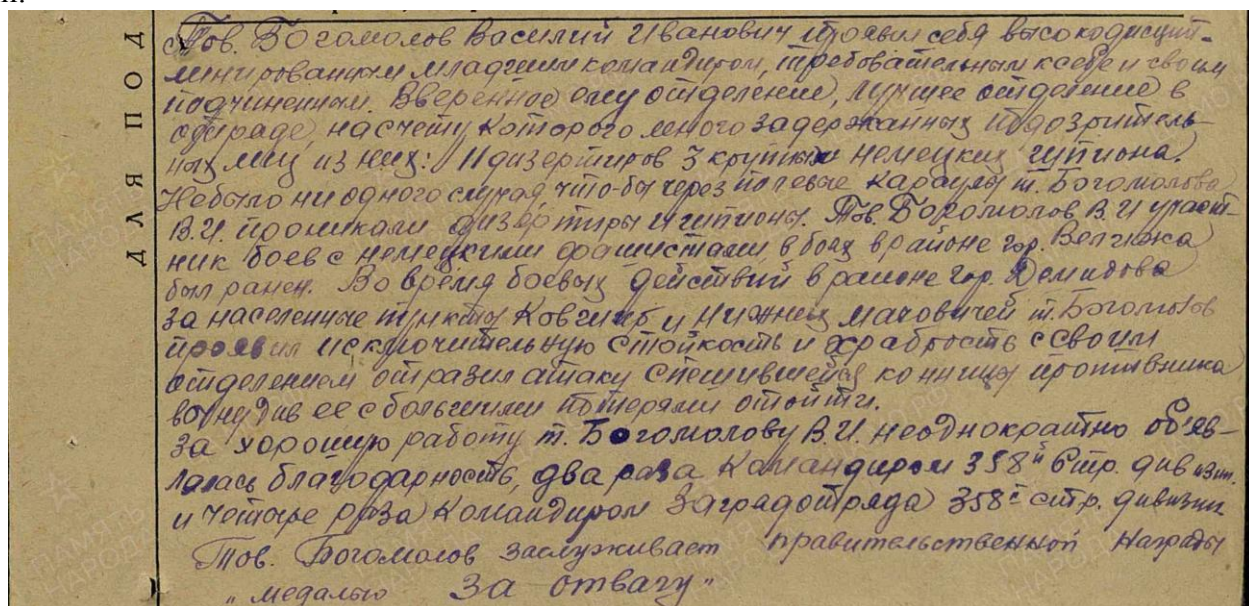 Тов. Богомолов Василий Иванович проявил себя высокодисцип-
линированным младшим командиром, требовательным к себе и своим
подчиненным. Вверенное ему отделение, лучшее отделение в
отряде, на счету которого много задержанных подозритель-
ных лиц из них: 11 дизертиров 3 крупных немецких шпиона.
Небыло ни одного случая, что-бы через полевые караулы т. Богомолова
В.И. проникали дизертиры и шпионы. Тов. Богомолов В.И участ-
ник боев с немецкими фашистами, в боях в районе гор. Велижа
был ранен. Во время боевых действий в районе гор. Демидова
за населенные пункты и Нижних т. Богомолов
проявил исключительную стойкость и храбрость с своим
отделением отразил атаку спешившейся конницы противника
вынудив ее с большими потерями отойти.
За хорошую работу т. Богомолову В.И. неоднократно об'яв-
лялась благодарность, два раза Командиром 358й Стр. дивизии.
и четыре раза Командиром Заградотряда 358й стр. дивизии.
Тов. Богомолов заслуживает правительственной награды
„медалью За отвагу"
ДЛЯ ПОД
ПАМЯТЬ НАРОДА